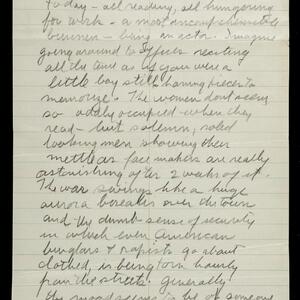 today - all reading, all hungering
for work - a most incomprehensible
business - being an actor. Imagine
going around to offices reciting
all the time as if you were a
little boy still having pieces to
memorize. The women dont seem
so oddly occupied when they
read - but solemn, soled
looking men showing their
mettle as face makers are really
astonishing after 2 weeks of it.
The war swings like a huge
aurora borealis over the town
and the dumb sense of security
in which even American
burglars & rapists go about
clothed, is being torn hourly
from the streets. Generally
the mood seems to be of someone